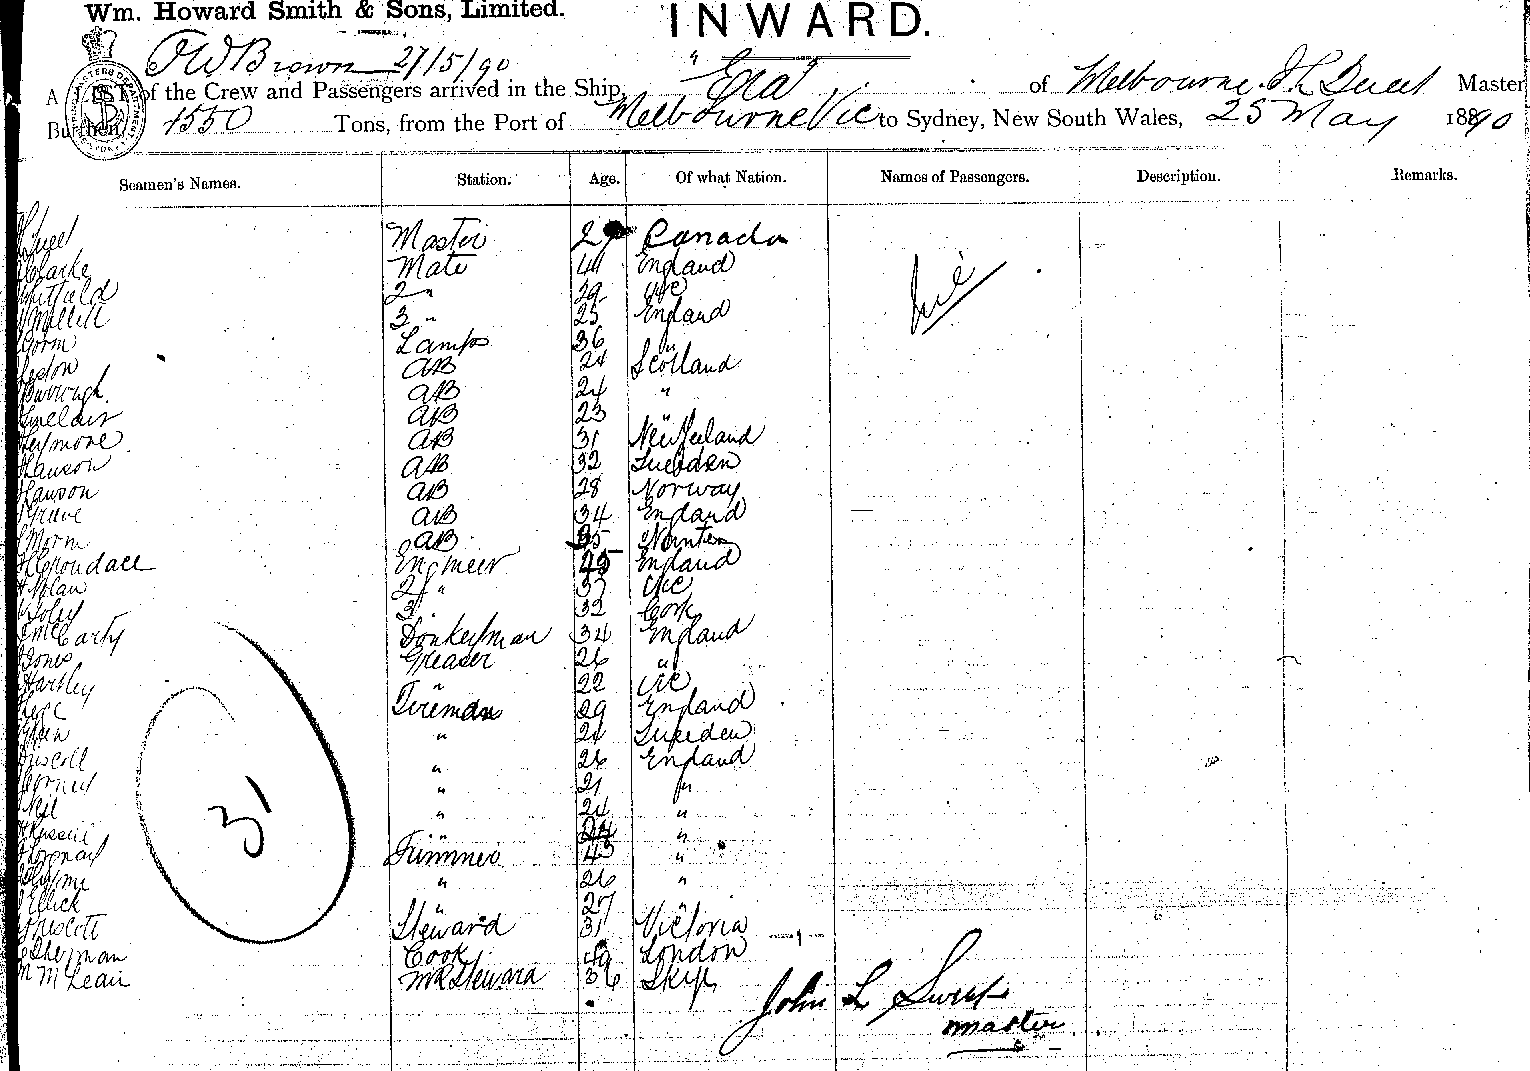 Wm. Howard Smith & Sons, Limited.
INWARD.
F W Brown 27/5/90
A LIST of the Crew and Passengers arrived in the Ship, "Era" of Melbourne J L Sweet Master
Burthen 1550 Tons, from the Port of Melbourne Vic to Sydney, New South Wales, 25 May 1890
Seamen's Names. Station. Age. Of what Nation. Names of Passengers. Description. Remarks.
Sweet Master 29 Canada
Clarke Mate 41 England
Whitfield 2 " 29 Vic
3 " 25 England
Lamps 36 "
AB 24 Scotland
Burrough. AB 24 "
Sinclair AB 23 "
Seymore AB 31 New Zealand
Hanson AB 32 Sweden
Hanson AB 28 Norway
AB 34 England
AB 35
Engineer 45 England
Nolan 2 " 37 Vic
Foley 3 " 32 Cork
McCarty Donkeyman 34 England
Jones Greaser 26 "
Hartley " 22 Vic
Fireman 29 England
" 24 Sweden
Driscoll " 26 England
" 21 "
Neil " 24 "
Russell " 24 "
Trimmer 43 "
" 26 "
Ellick " 27 "
Prescott Steward 31 Victoria
Sherman Cook 49 London
M McLean Steward 36 Skye
31
John L Sweet
master